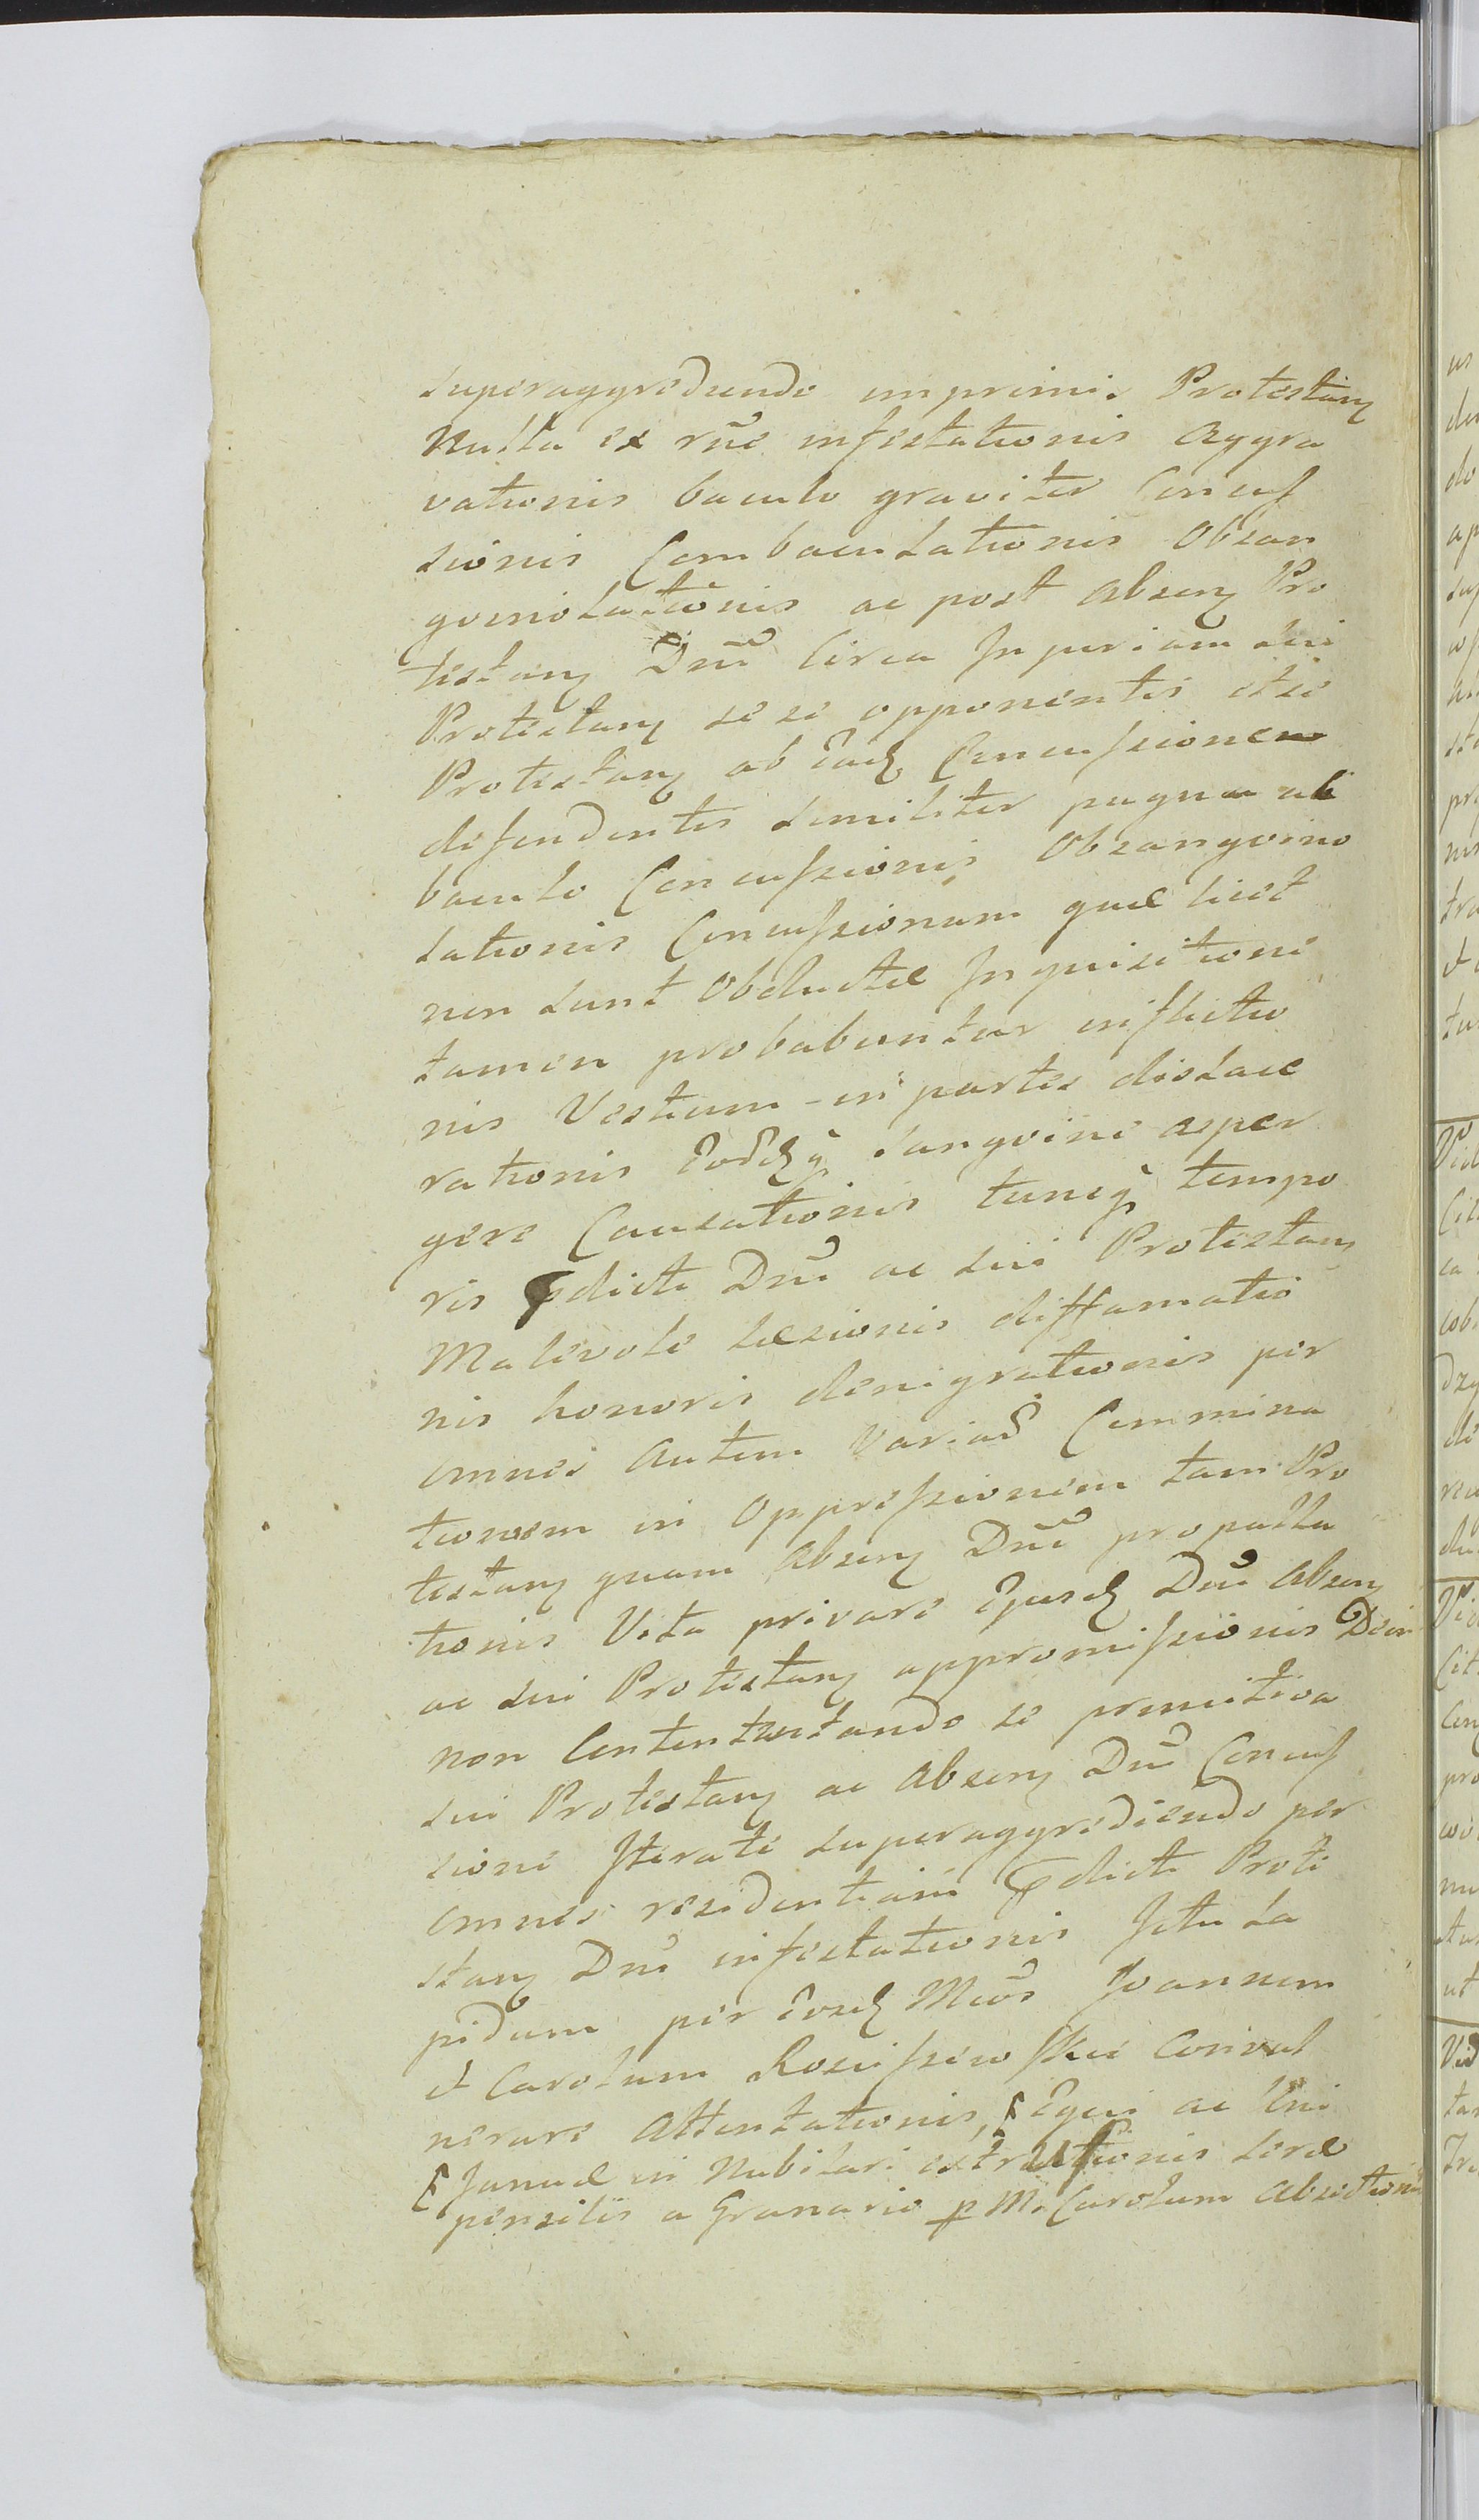 superaggrediendo imprimis Protestanz
Nulla ex rñe infestationis Aggra
vationis baculo graviter Concus
sionis Combaculationis Obsan
gvinolationis ac post Absenz Pro
testanz Dñi circa Injuriam sui
Protestanz se se opponentis et se
Protestanz ab Ead. Concussionem
defendentis similiter pugna ab
baculo Concussionis Obsangvino
lationis Concussionum quæ licet
non sunt Obductæ Inquisitione
tamen probabuntur inflictio
nis Vestium in partes dislace
rationis Eordq. sangvine asper
gere Causationis tuncq tempo
ris prdicti Dñi ac sui Protestanz
Malevole Læsionis diffamatio
nis honoris denigrationis per
omnes autem Variad Commina
tionem in Oppressionem tam Pro
testanz quam Absenz Dñi propalla
tionis Vita privare Ejusd Dñi Absenz
ac sui Protestanz appromissionis Dein
non Contentando se primitiva
sui Protestanz ac Absenz Dñi Concus
sione Iterate superaggrediendo per
omnes residentiam prdicti Prote
stanz Dñi infestationis Ictu La
pidum per Eosd Mcos Joannem
et Carolum Rosciszewskie Convul
nerare Attentationis, Equi ac Uni
Januæ in Nubilari extractionis seræ
pensilis a Granario p M. Carolum Absectionis